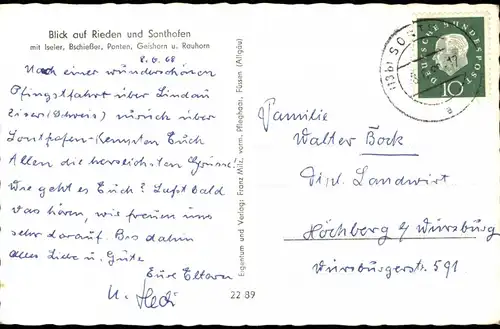 Blick auf Rieden und Sonthofen
mit Iseler, Bschießer, Ponten, Geishorn u. Rauhorn
8.6.68
Nach einer wunderschönen
Pfingstfahrt über Lindau
(Schweis) zurück über
Sonthofen-Kempten Euch
Allen die herzlichsten Grüsse!
Wie geht es Euch? Lasst bald
was hören, wir freuen uns
sehr darauf. Bis dahin
alles Liebe u. Gute
Eure Eltern
u. Hedi
22 89
Eigentum und Verlag: Franz Milz, vorm. Pfleghaar, Füssen (Allgäu)
DEUTSCHE BUNDESPOST
10
Familie
Walter Bock
Dipl. Landwirt
Höchberg b/ Würsburg
Würsburgerstr. 591